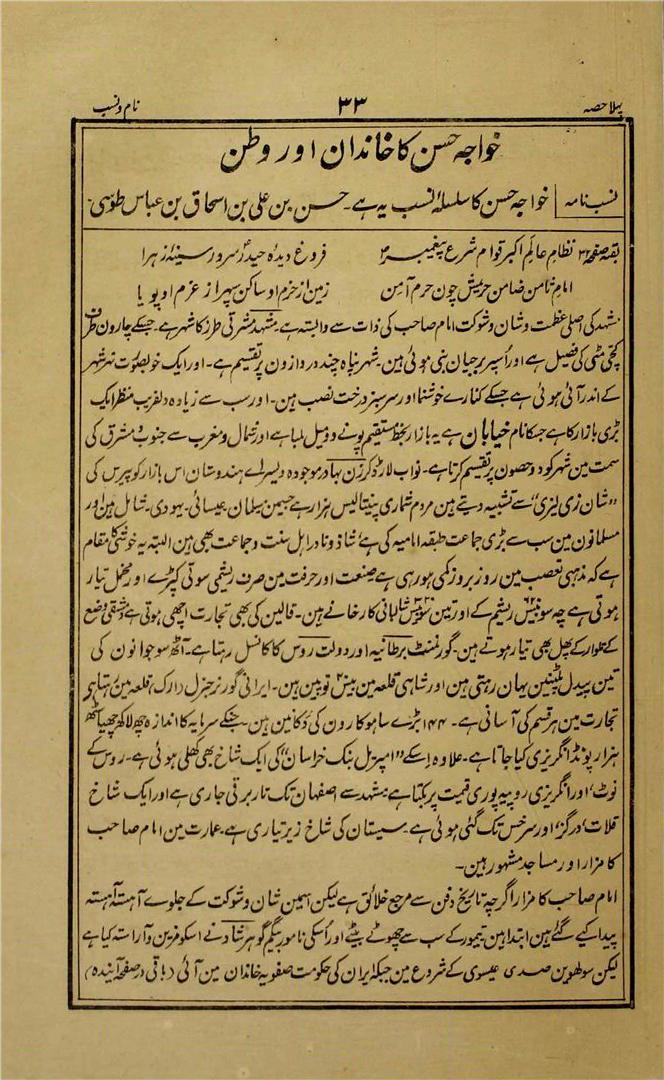 پہلا حصہ ۳۳ نام و نسب
خواجہ حسن کا خاندان اور وطن
نسب نامہ خواجہ حسن کا سلسلۂ نسب یہ ہے۔ حسن بن علی بن اسحاق بن عباس طوسی۔
بقیہ صفحہ ۳۲ نظامِ عالمِ اکبر قوامِ شرعِ پیغمبر فروغ دیدۂ حیدر سرور سینۂ زہرا
امامِ ثامن ضامن حریمش چون حرم آمن زمین از حزم او ساکن سپہر از عزم او پویا
مشہد کی اصلی عظمت و شان و شوکت امام صاحب کی ذات سے وابستہ ہے۔ مشہد مشرقی طرز کا شہر ہے۔ جسکے چارون طرف
کچی مٹی کی فصیل ہے اور اُسپر برجیان بنی ہوئی ہین۔ شہر پناہ چند دروازون پر تقسیم ہے۔ اور ایک خوبصورت نہر شہر
کے اندر آئی ہوئی ہے جسکے کنارے خوشنما اور سرسبز درخت نصب ہین۔ اور سب سے زیادہ دلفریب منظر ایک
بڑی بازار کا ہے جسکا نام خیابان ہے یہ بازار بخط مستقیم پونے دو میل لمبا ہے اور شمال و مغرب سے جنوب و مشرق کی
سمت مین شہر کو دو حصون پر تقسیم کرتا ہے۔ نواب لارڈ کرزن بہادر موجودہ ویسراے ہندوستان اس بازار کو پیرس کی
"شان زی لیزی" سے تشبیہ دیتے ہین مردم شماری پنیتالیس ہزار ہے جسمین مسلمان عیسائی۔ یہودی۔ شامل ہین اور
مسلمانون مین سب سے بڑی جماعت طبقہ امامیہ کی ہے شاذ و نادر اہل سنت و جماعت بھی ہین البتہ یہ خوشی کا مقام
ہے کہ مذہبی تعصب مین روز بروز کمی ہو رہی ہے صنعت اور حرفت مین صرف ریشمی سوتی کپڑے اور مخمل تیار
ہوتی ہے چھ سو ریشم کے اور تین سو شالبانی کارخانے ہین۔ قالین کی بھی تجارت اچھی ہوتی ہے دمشقی وضع
کے تلوار کے پھل بھی تیار ہوتے ہین۔ گورنمنٹ برطانیہ اور دولت روس کا کانسل رہتا ہے۔ آٹھ سو جوانون کی
تین پیدل پلٹنین یہان رہتی ہین اور شاہی قلعہ مین بیس توپین ہین۔ ایرانی گورنر جنرل (ارک) قلعہ مین رہتا ہے
تجارت مین ہر قسم کی آسانی ہے۔ ۱۴۴ بڑے ساہوکارون کی دُکانین ہین جنکے سرمایہ کا اندازہ چھ لاکھ
ہزار پونڈ انگریزی کیا جاتا ہے۔ علاوہ اسکے "امپریل بنک خراسان" کی ایک شاخ بھی کھلی ہوئی ہے۔ روس کے
نوٹ، اور انگریزی روپیہ پوری قیمت پر بکتا ہے مشہد سے اصفہان تک تار برقی جاری ہے اور ایک شاخ
قلات، درگز، اور سرخس تک گئی ہوئی ہے۔ سیستان کی شاخ زیر تیاری ہے۔ عمارت مین امام صاحب
کا مزار اور مساجد مشہور ہین۔
امام صاحب کا مزار اگرچہ تاریخ دفن سے مرجع خلائق ہے لیکن اسمین شان و شوکت کے جلوے آہستہ آہستہ
پیدا کیے گئے ہین ابتدا ہین تیمور کے سب سے چھوٹے بیٹے اور اُسکی نامور بیگم گوہر شاد نے اسکو مزین و آراستہ کیا ہے
لیکن سولھوین صدی عیسوی کے شروع مین جبکہ ایران کی حکومت صفویہ خاندان مین آئی (باقی در صفحہ آیندہ)